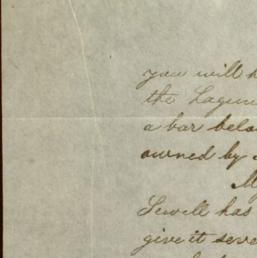 you will h
the Lagun
a bar belo
owned by
M
Sewell has
give it seve